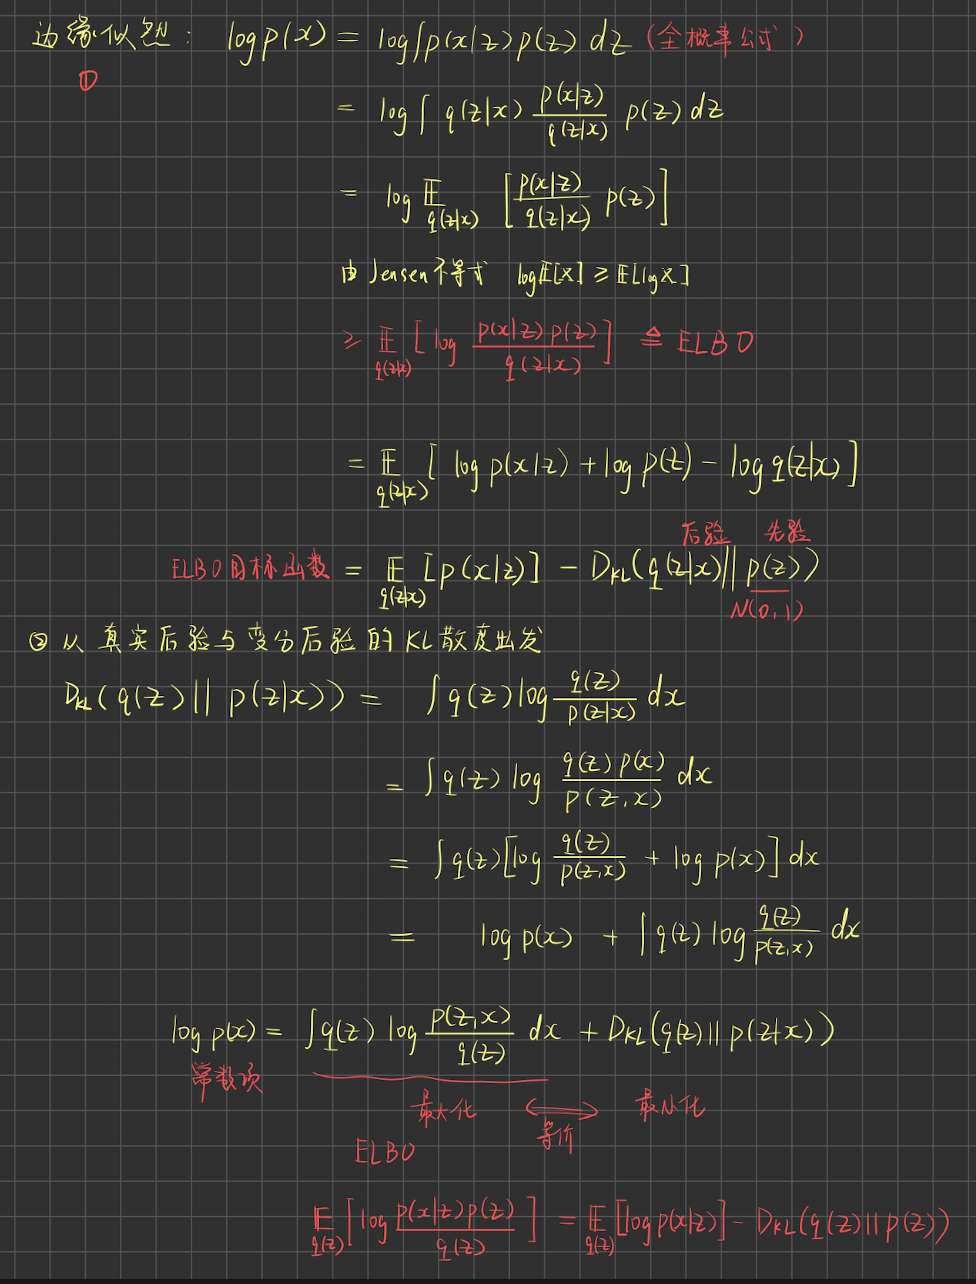 边缘似然: log p(x) = log∫p(x|z)p(z) dz (全概率公式)
①
= log∫ q(z|x) \frac{p(x|z)}{q(z|x)} p(z) dz
= log 𝔼_{q(z|x)} [\frac{p(x|z)}{q(z|x)} p(z)]
由 Jensen不等式 log𝔼[X] ≥ 𝔼[log X]
≥ 𝔼_{q(z|x)} [log \frac{p(x|z)p(z)}{q(z|x)}] ≜ ELBO
= 𝔼_{q(z|x)} [log p(x|z) + log p(z) - log q(z|x)]
后验 先验
ELBO目标函数 = 𝔼_{q(z|x)} [p(x|z)] - D_{KL}(q(z|x)||p(z))
N(0,1)
② 从真实后验与变分后验的KL散度出发
D_{KL}(q(z)||p(z|x)) = ∫q(z)log\frac{q(z)}{p(z|x)} dx
= ∫q(z) log \frac{q(z)p(x)}{p(z,x)} dx
= ∫q(z)[log \frac{q(z)}{p(z,x)} + log p(x)] dx
= log p(x) + ∫q(z) log \frac{q(z)}{p(z,x)} dx
log p(x) = ∫q(z) log \frac{p(z,x)}{q(z)} dx + D_{KL}(q(z)||p(z|x))
常数项
最大化 ⟺ 最小化
等价
ELBO
𝔼_{q(z)} [log \frac{p(x|z)p(z)}{q(z)}] = 𝔼_{q(z)} [log p(x|z)] - D_{KL}(q(z)||p(z))